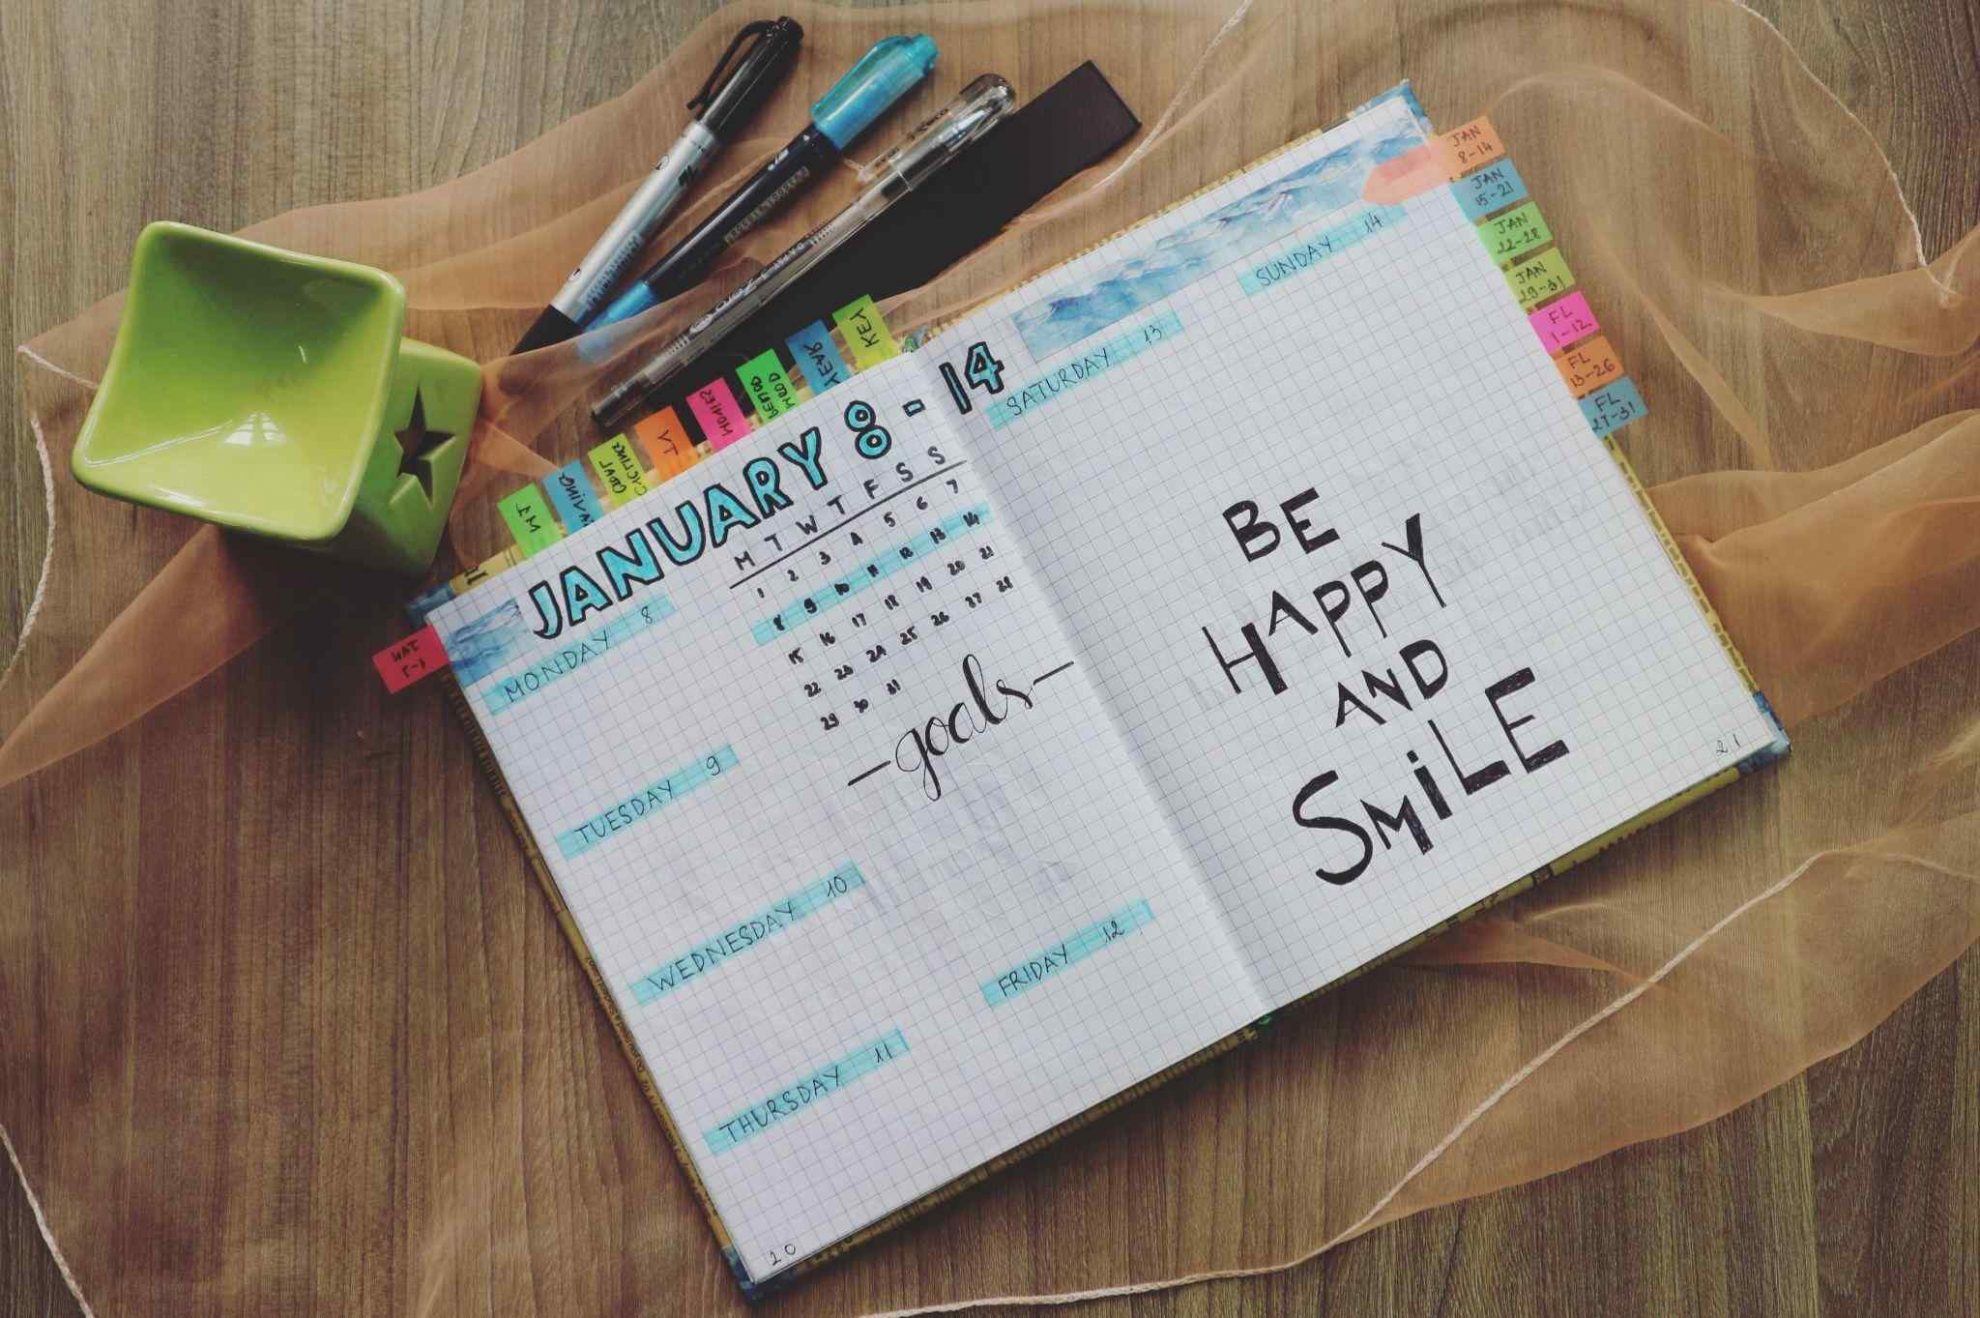 JANUARY 8 - 14
M T W T F S S
1 2 3 4 5 6 7
8 9 10 11 12 13 14
15 16 17 18 19 20 21
22 23 24 25 26 27 28
29 30 31
MONDAY 8
-goals-
TUESDAY 9
WEDNESDAY 10
THURSDAY 11
FRIDAY 12
20
SATURDAY 13
SUNDAY 14
BE
HAPPY
AND
SMiLE
21
KEY
YEAR
MOOD
JAN
8-14
JAN
15-21
JAN
22-28
JAN
29-31
FL
1-12
FL
13-26
FL
27-31